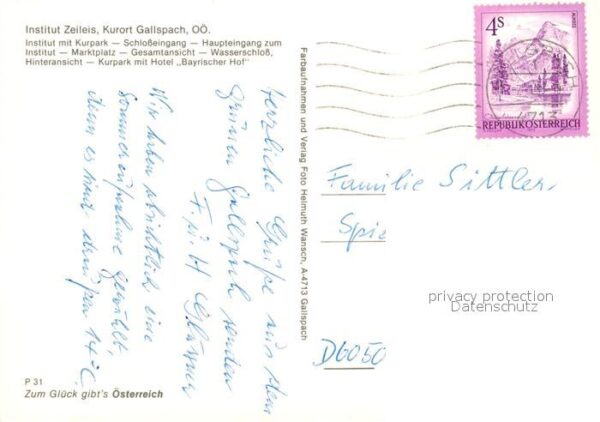 Institut Zeileis, Kurort Gallspach, OÖ.
Institut mit Kurpark — Schloßeingang — Haupteingang zum
Institut — Marktplatz — Gesamtansicht — Wasserschloß,
Hinteransicht — Kurpark mit Hotel „Bayrischer Hof"
Herzliche Grüße aus dem
Grünen Gallspach senden
F. u. H
Wir haben absichtlich eine
Sommeraufnahme gewählt,
denn es sind draußen 14°C.
P 31
Zum Glück gibt's Österreich
Farbaufnahmen und Verlag Foto Helmuth Wansch, A-4713 Gallspach
4S
REPUBLIK ÖSTERREICH
4713
Familie Sittler
Spie
D6050
privacy protection
Datenschutz